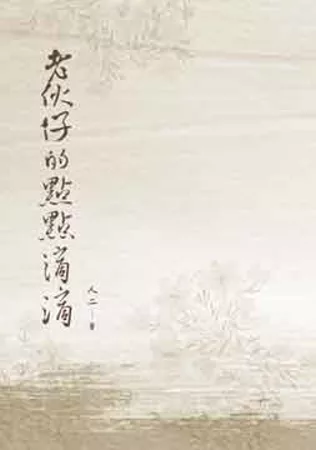 老伙仔的點點滴滴
人二一書